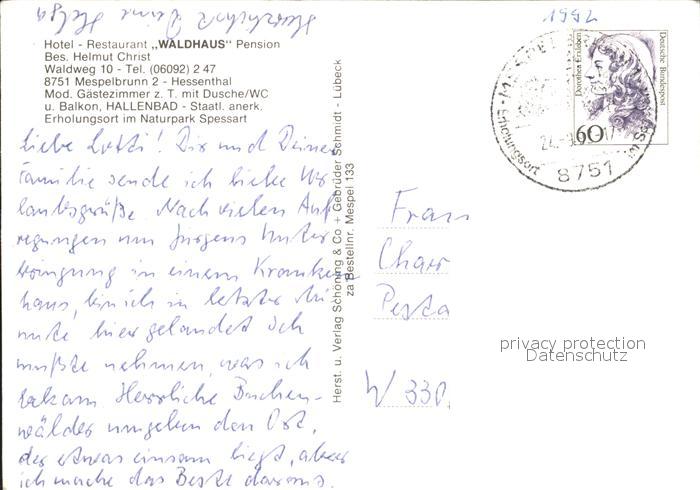 1991
Herzlichst Deine Helga
Hotel - Restaurant „WALDHAUS" Pension
Bes. Helmut Christ
Waldweg 10 - Tel. (06092) 2 47
8751 Mespelbrunn 2 - Hessenthal
Mod. Gästezimmer z. T. mit Dusche/WC
u. Balkon, HALLENBAD - Staatl. anerk.
Erholungsort im Naturpark Spessart
Liebe Lotti! Dir und Deiner
Familie sende ich liebe Ur
laubsgrüße. Nach vielen Auf
regungen um Jürgens Unter
bringung in einem Kranken
haus, bin ich in letzter Mi
nute hier gelandet. Ich
mußte nehmen, was ich
bekam. Herrliche Buchen-
wälder umgeben den Ort,
der etwas einsam liegt, aber
ich mache das Beste daraus.
Herst. u. Verlag Schöning & Co + Gebrüder Schmidt - Lübeck
zu Bestellnr. Mespel 133
Dorothea Erxleben
Deutsche Bundespost
60
Erholungsort
8751
Frau
Char
Pesta
W 330
privacy protection
Datenschutz